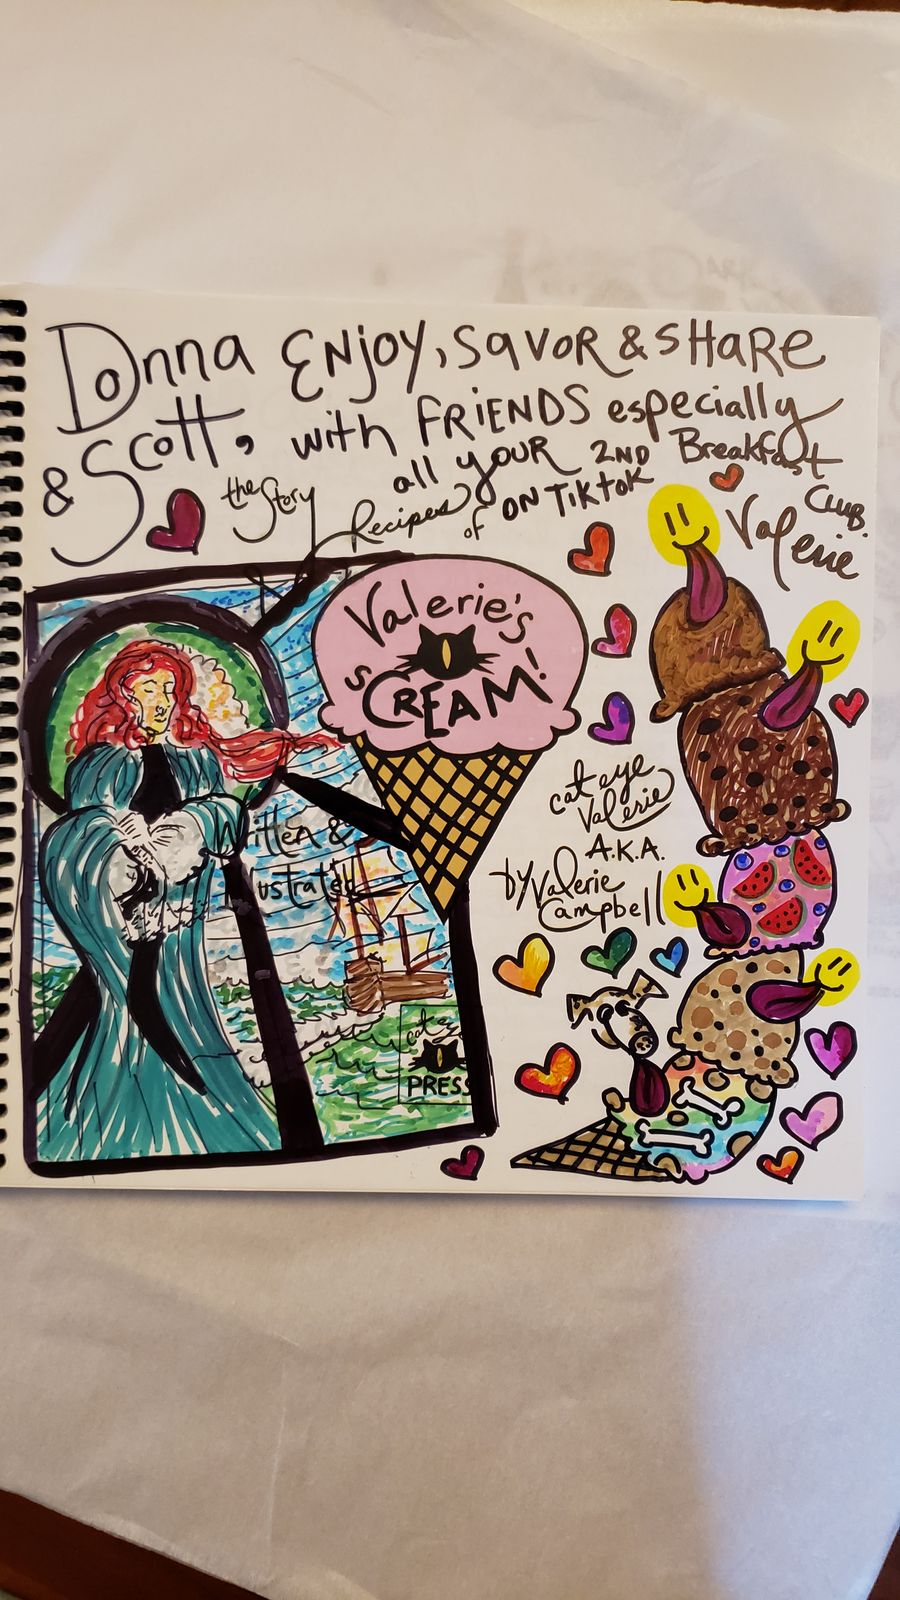 Donna Enjoy, savor & share
& Scott, with friends especially
all your 2nd Breakfast
on TikTok Club.
Valerie
the Story
Recipes
of
Valerie's
sCREAM!
cat eye
Valerie
A.K.A.
by Valerie
Campbell
Written &
Illustrated
cat eye
PRESS